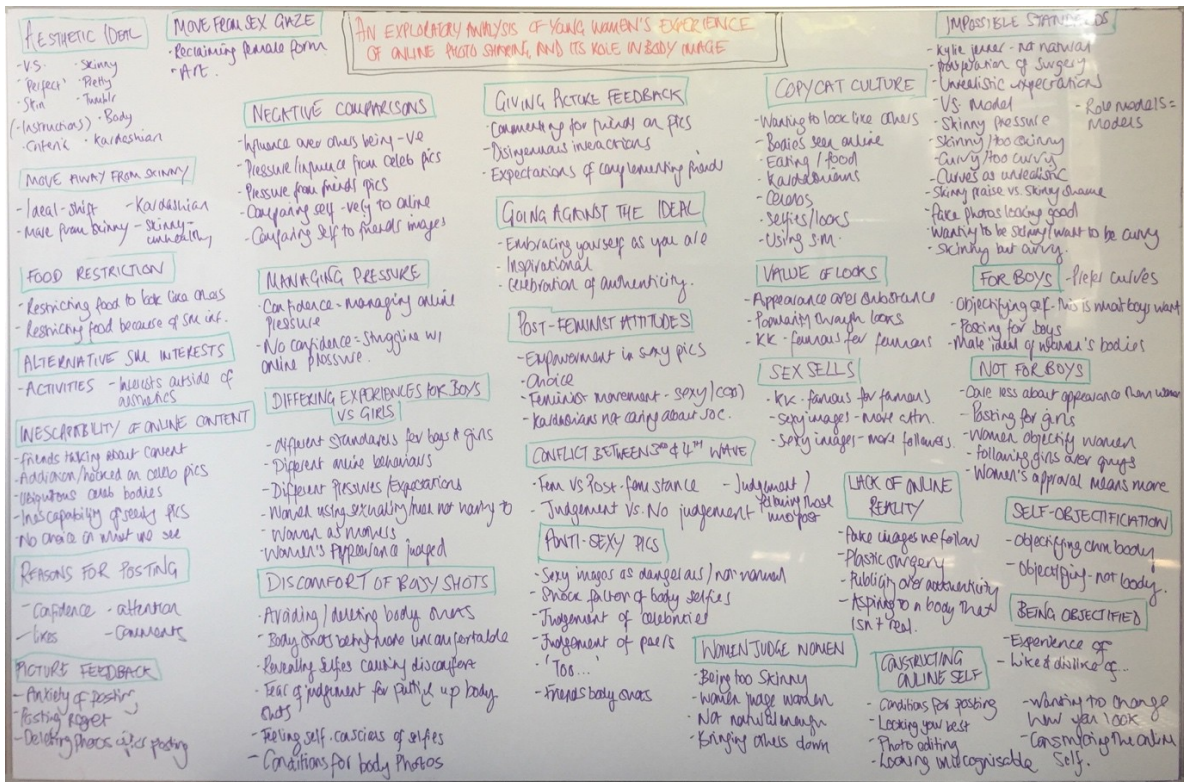 AN EXPLORATORY ANALYSIS OF YOUNG WOMEN'S EXPERIENCE
OF ONLINE PHOTO SHARING, AND ITS ROLE IN BODY IMAGE
AESTHETIC IDEAL
- V.S. - Skinny
- Perfect - Pretty
- Skin - Tumblr
(- Instructions) - Body
- Criteria - Kardashian
MOVE AWAY FROM SKINNY
- Ideal - shift - Kardashian
- Move from skinny - skinny = unhealthy
FOOD RESTRICTION
- Restricting food to look like others
- Restricting food because of SM inf.
ALTERNATIVE SM INTERESTS
- ACTIVITIES - Interests outside of
aesthetics
INESCAPABILITY OF ONLINE CONTENT
- friends talking about content
- Addiction/hooked on celeb pics
- Ubiquitous celeb bodies
- Inescapability of seeing pics
- No choice in what we see
REASONS FOR POSTING
- Confidence - attention
- likes - comments
PICTURE FEEDBACK
- Anxiety of posting
- Posting Regret
- Deleting photos after posting
MOVE FROM SEX GAZE
- Reclaiming female form
- Art.
NEGATIVE COMPARISONS
- Influence over others being -ve
- Pressure/influence from celeb pics
- Pressure from friends pics
- Comparing self -vely to online
- Comparing self to friends images
MANAGING PRESSURE
- Confidence = managing online
pressure
- No confidence = struggling w/
online pressure.
DIFFERING EXPERIENCES FOR BOYS
VS GIRLS
- Different standards for boys & girls
- Different online behaviours
- Different pressures/expectations
- Women using sexuality/men not having to
- Women as mothers
- Women's Appearance judged
DISCOMFORT OF BODY SHOTS
- Avoiding/deleting body shots
- Body shots being more uncomfortable
- Revealing selfies causing discomfort
- Fear of judgement for putting up body
shots
- Feeling self-conscious of selfies
- Conditions for body Photos
GIVING PICTURE FEEDBACK
- Commenting for friends on pics
- Disingenuous interactions
- Expectations of complementing friends
GOING AGAINST THE IDEAL
- Embracing yourself as you are
- Inspirational
- Celebration of authenticity.
POST-FEMINIST ATTITUDES
- Empowerment in sexy pics
- Choice
- Feminist movement - sexy/
- Kardashians not caring about soc.
CONFLICT BETWEEN 3RD & 4TH WAVE
- Fem vs Post-fem stance - Judgement/
following those
who post
- Judgement vs. No judgement
ANTI-SEXY PICS
- Sexy images as dangerous/not normal
- Shock factor of body selfies
- Judgement of celebrities
- Judgement of peers
- 'Too...'
- Friends body shots
WOMEN JUDGE WOMEN
- Being too skinny
- Women judge women
- Not natural enough
- Bringing others down
COPYCAT CULTURE
- Wanting to look like others
- Bodies seen online
- Eating/food
- Kardashians
- Celebs
- Selfies/looks
- Using S.M.
VALUE OF LOOKS
- Appearance over substance
- Popularity through looks
- KK - famous for famous
SEX SELLS
- KK - famous for famous
- Sexy images - more attn.
- Sexy images - more followers.
LACK OF ONLINE
REALITY
- Fake images we follow
- Plastic surgery
- Publicity over authenticity
- Aspiring to a body that
isn't real.
CONSTRUCTING
ONLINE SELF
- Conditions for posting
- Looking your best
- Photo editing
- Looking unrecognisable
- Wanting to change
how you look
- Constructing the online
Self.
IMPOSSIBLE STANDARDS
- Kylie Jenner - not natural
- of surgery
- Unrealistic expectations
- VS. model - Role models =
models
- Skinny pressure
- Skinny/too skinny
- Curvy/too curvy
- Curves as unrealistic
- Skinny praise vs. skinny shame
- Fake photos looking good
- Wanting to be skinny/want to be curvy
- Skinny but curvy.
FOR BOYS - Prefer curves
- Objectifying self - this is what boys want
- Posting for boys
- Male 'ideal' of women's bodies
NOT FOR BOYS
- Care less about appearance than women
- Posting for girls
- Women objectify women
- Following girls over guys
- Women's approval means more
SELF-OBJECTIFICATION
- Objectifying own body
- Objectifying - not body.
BEING OBJECTIFIED
- Experience of
- Like & dislike of...